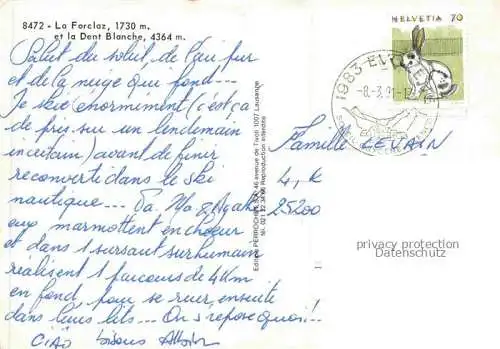 8472 - La Forclaz, 1730 m.
et la Dent Blanche, 4364 m.
Salut du soleil de l'air pur
et de la neige qui fond...
Je skie énormément (c'est ça
de pris sur un lendemain
incertain) avant de finir
reconverti dans le ski
nautique... Pa, Ma & Agathe
eux marmottent en chœur
et dans 1 sursaut surhumain
réalisent 1 parcours de 4 Km
en fond, pour se ruer ensuite
dans leurs lits... On s'repose quoi!...
CIAO bisous
Edition PERROCHET S.A. 46 avenue de Tivoli 1007 Lausanne
Reproduction interdite
HELVETIA 70
1983
-8.-3.91-
Famille LEVAIN
4, R
25200
privacy protection
Datenschutz